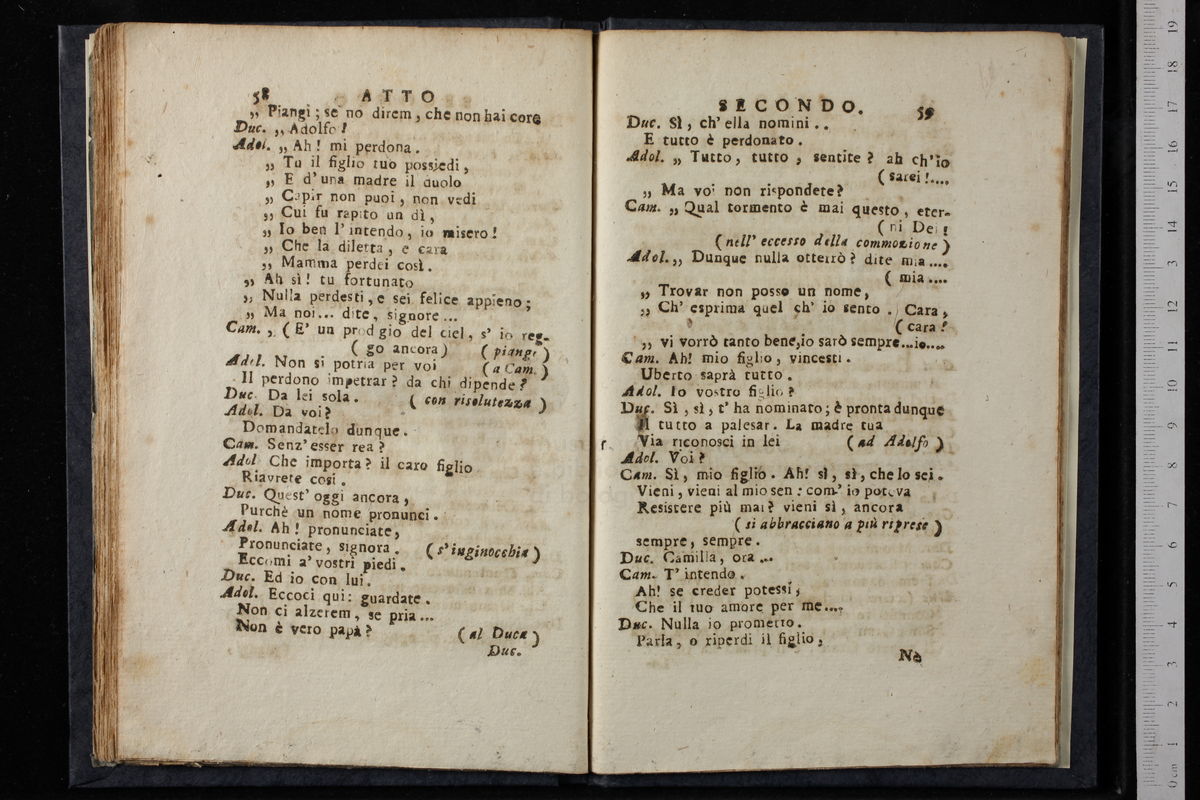 58 ATTO
„ Piangi ; se no direm, che non hai core
Duc. „ Adolfo !
Adol. „ Ah ! mi perdona.
„ Tu il figlio tuo possiedi,
„ E d' una madre il duolo
„ Capir non puoi, non vedi
„ Cui fu rapito un dì,
„ Io ben l' intendo, io misero !
„ Che la diletta, e cara
„ Mamma perdei così.
„ Ah sì ! tu fortunato
„ Nulla perdesti, e sei felice appieno ;
„ Ma noi... dite, signore...
Cam. „ ( E' un prodgio del ciel, s' io reg-
( go ancora) ( piange )
Adol. Non si potria per voi ( a Cam. )
Il perdono impetrar ? da chi dipende ?
Duc. Da lei sola. ( con risolutezza )
Adol. Da voi ?
Domandatelo dunque.
Cam. Senz' esser rea ?
Adol Che importa ? il caro figlio
Riavrete così.
Duc. Quest' oggi ancora,
Purchè un nome pronunci.
Adol. Ah ! pronunciate,
Pronunciate, signora. ( s' inginocchia )
Eccomi a' vostri piedi.
Duc. Ed io con lui.
Adol. Eccoci qui : guardate.
Non ci alzerem, se pria...
Non è vero papà ? ( al Duca )
Duc.
SECONDO. 59
Duc. Sì, ch' ella nomini ..
E tutto è perdonato.
Adol. „ Tutto, tutto, sentite ? ah ch'io
( sarei !....
„ Ma voi non rispondete ?
Cam. „ Qual tormento è mai questo, eter-
( ni Dei !
( nell' eccesso della commozione )
Adol. „ Dunque nulla otterrò ? dite mia ....
( mia ....
„ Trovar non posso un nome,
„ Ch' esprima quel ch' io sento. Cara,
( cara !
„ vi vorrò tanto bene, io sarò sempre...io....
Cam. Ah! mio figlio, vincesti.
Uberto saprà tutto.
Adol. Io vostro figlio ?
Duc. Sì, sì, t' ha nominato ; è pronta dunque
Il tutto a palesar. La madre tua
Via riconosci in lei ( ad Adolfo )
Adol. Voi ?
Cam. Sì, mio figlio. Ah! sì, sì, che lo sei.
Vieni, vieni al mio sen : com' io poteva
Resistere più mai ? vieni sì, ancora
( si abbracciano a più riprese )
sempre, sempre.
Duc. Camilla, ora ...
Cam. T' intendo.
Ah! se creder potessi,
Che il tuo amore per me....
Duc. Nulla io prometto.
Parla, o riperdi il figlio,
Nè
0 cm 1 2 3 4 5 6 7 8 9 10 11 12 13 14 15 16 17 18 19